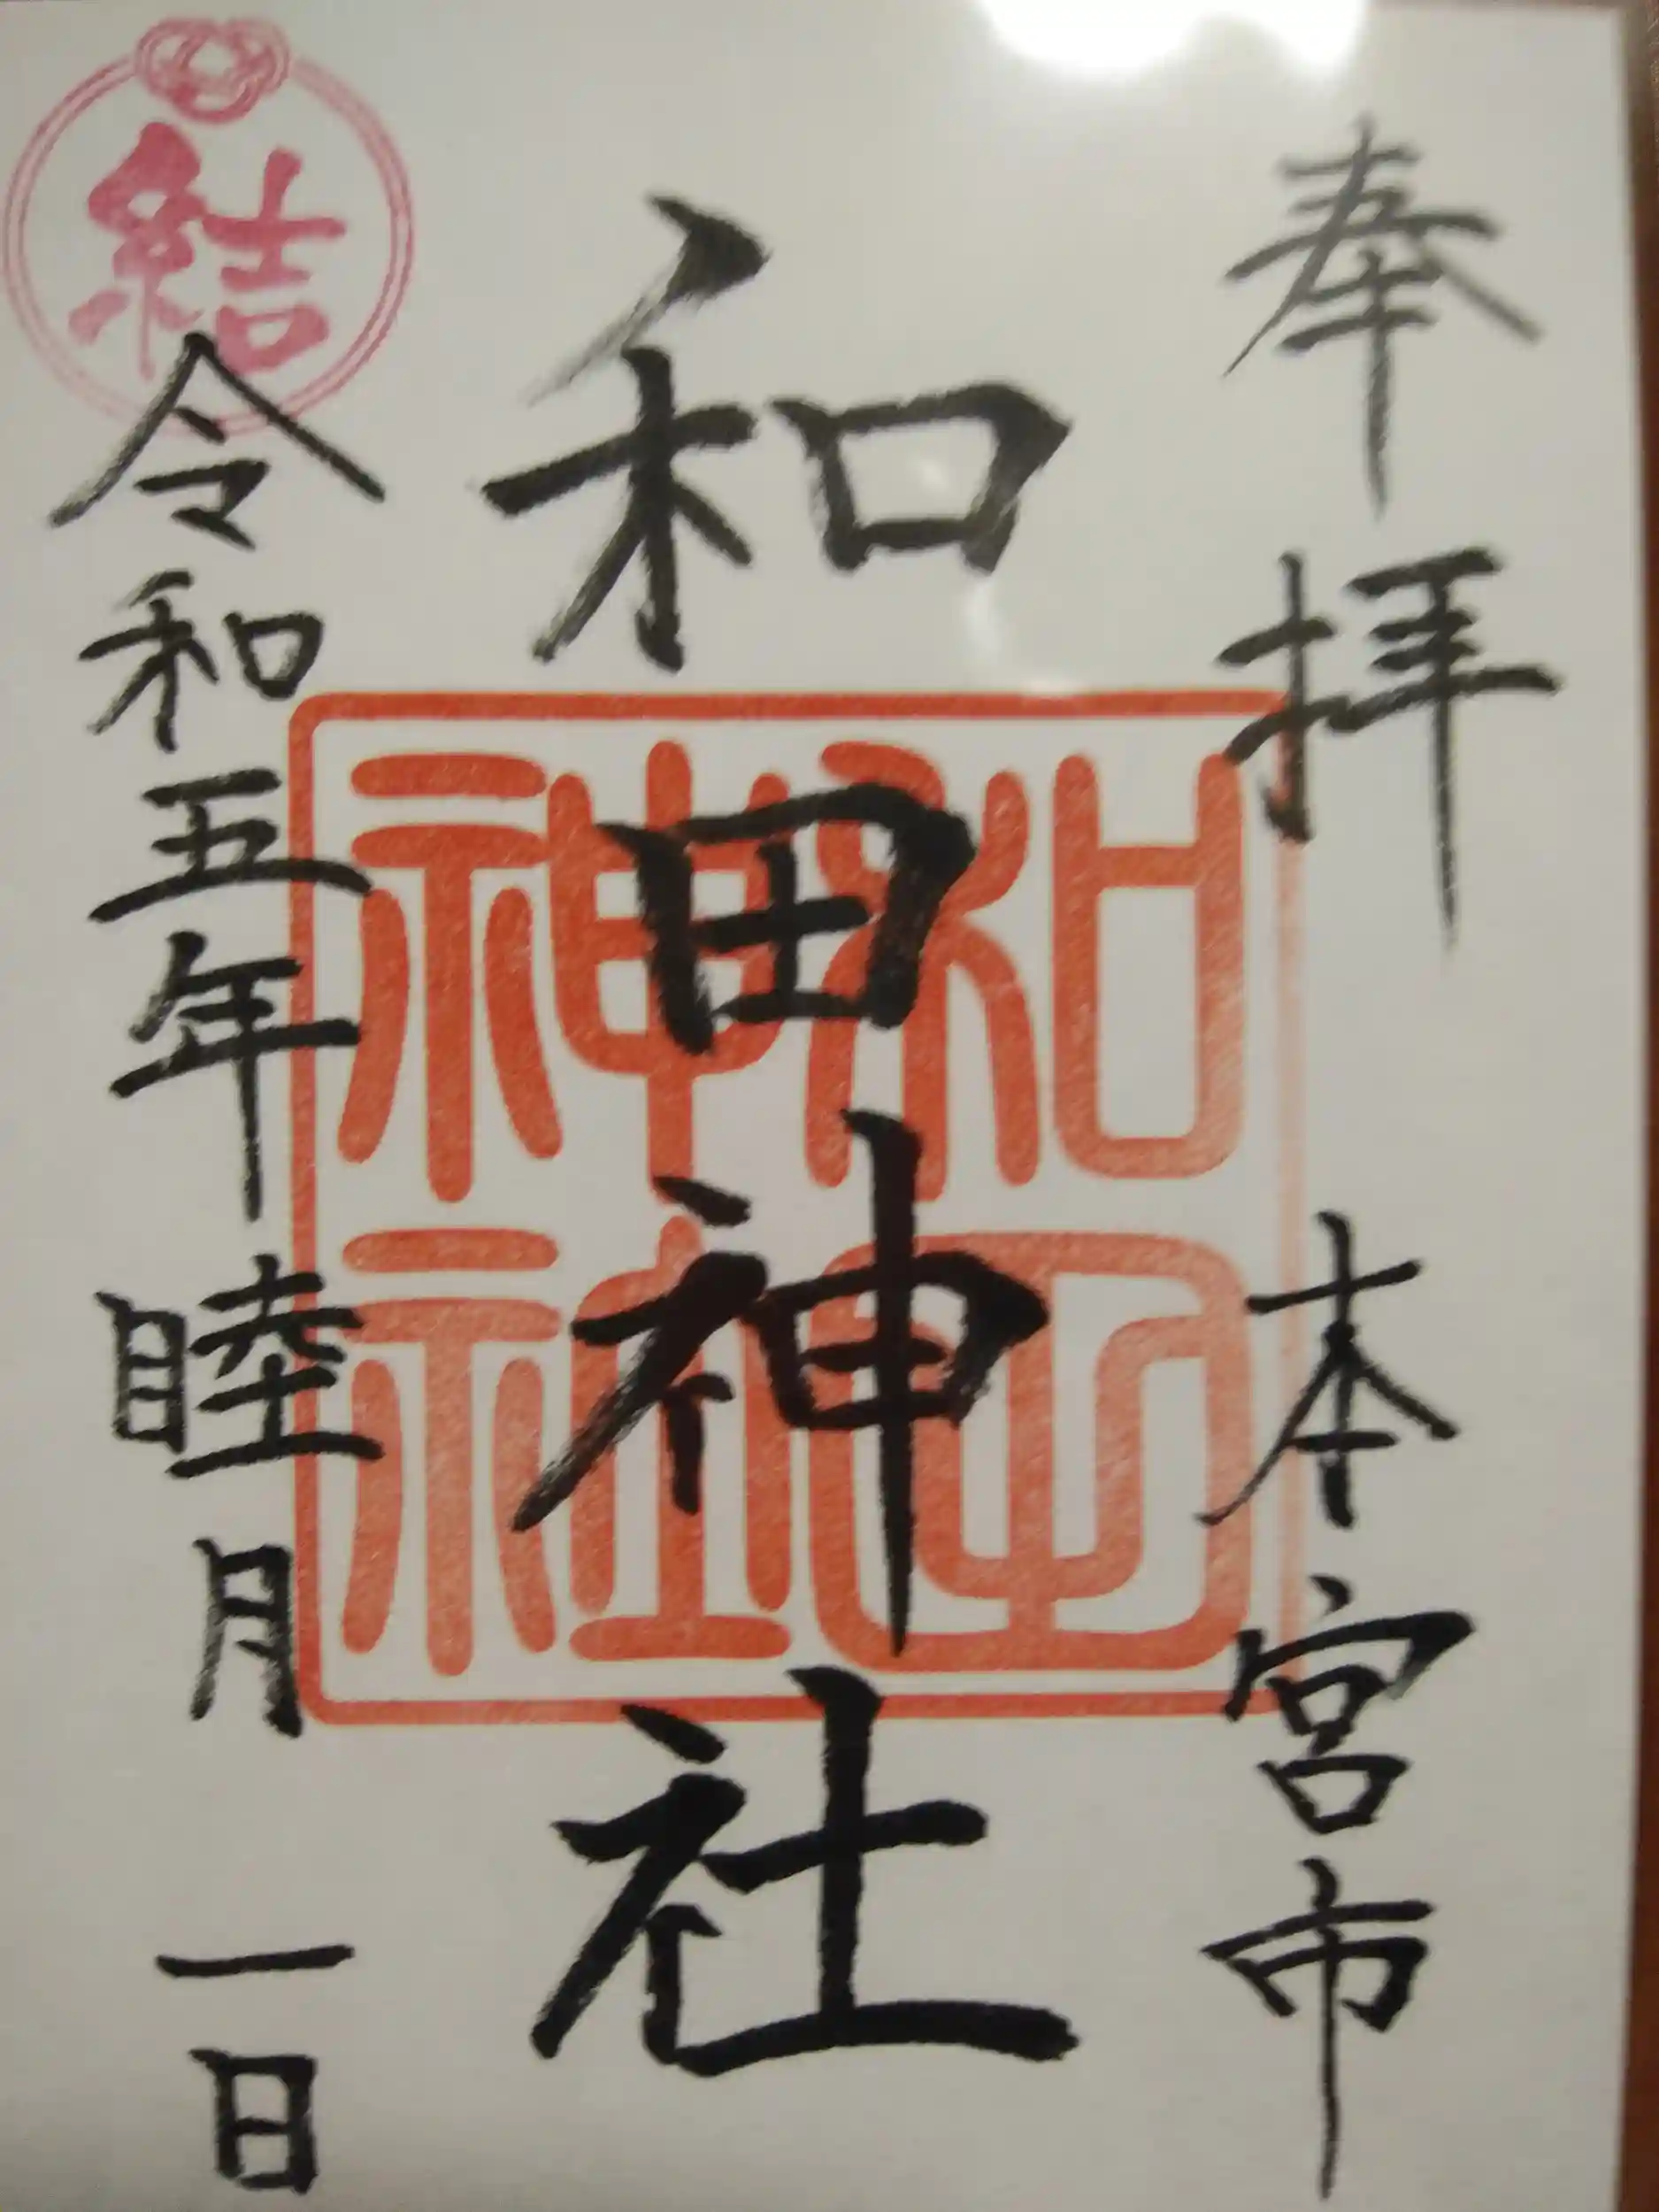 奉拝 本宮市
和田神社
和田
神社
結
令和五年 睦月 一日